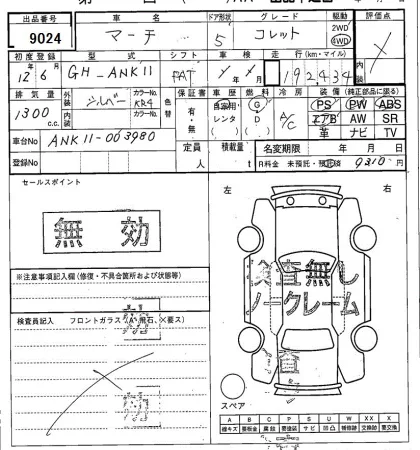 出品番号 車名 ドア形状 グレード 駆動 評価点
9024 マーチ 5 コレット 2WD 4WD
初度登録 型式 シフト 車検 走行(km・マイル)
12年 6月 GH-ANK11 FAT 年 月 192434
排気量 外装 カラーNo. 色替 保証書 車歴 燃料 冷房 装備(純正部品に限る)
1300 c.c. シルバー KR4 有・無 自家用 レンタ G D A/C PS PW ABS
内装 カラーNo. エアB AW SR
革 ナビ TV
車台No ANK11-003980 定員 人 積載量 t 名変期限 年 月 日
登録No R料金 未預託・預託済 9210円
セールスポイント 左 右
無効
検査無し
ノークレーム
※注意事項記入欄(修復・不具合箇所および状態等)
検査員記入 フロントガラス(A・飛石、×要ス)
スペア
A B C P S U W XX X
線キズ 要板金 腐蝕 要塗装 サビ 凹凸 補修跡 交換跡 要交換